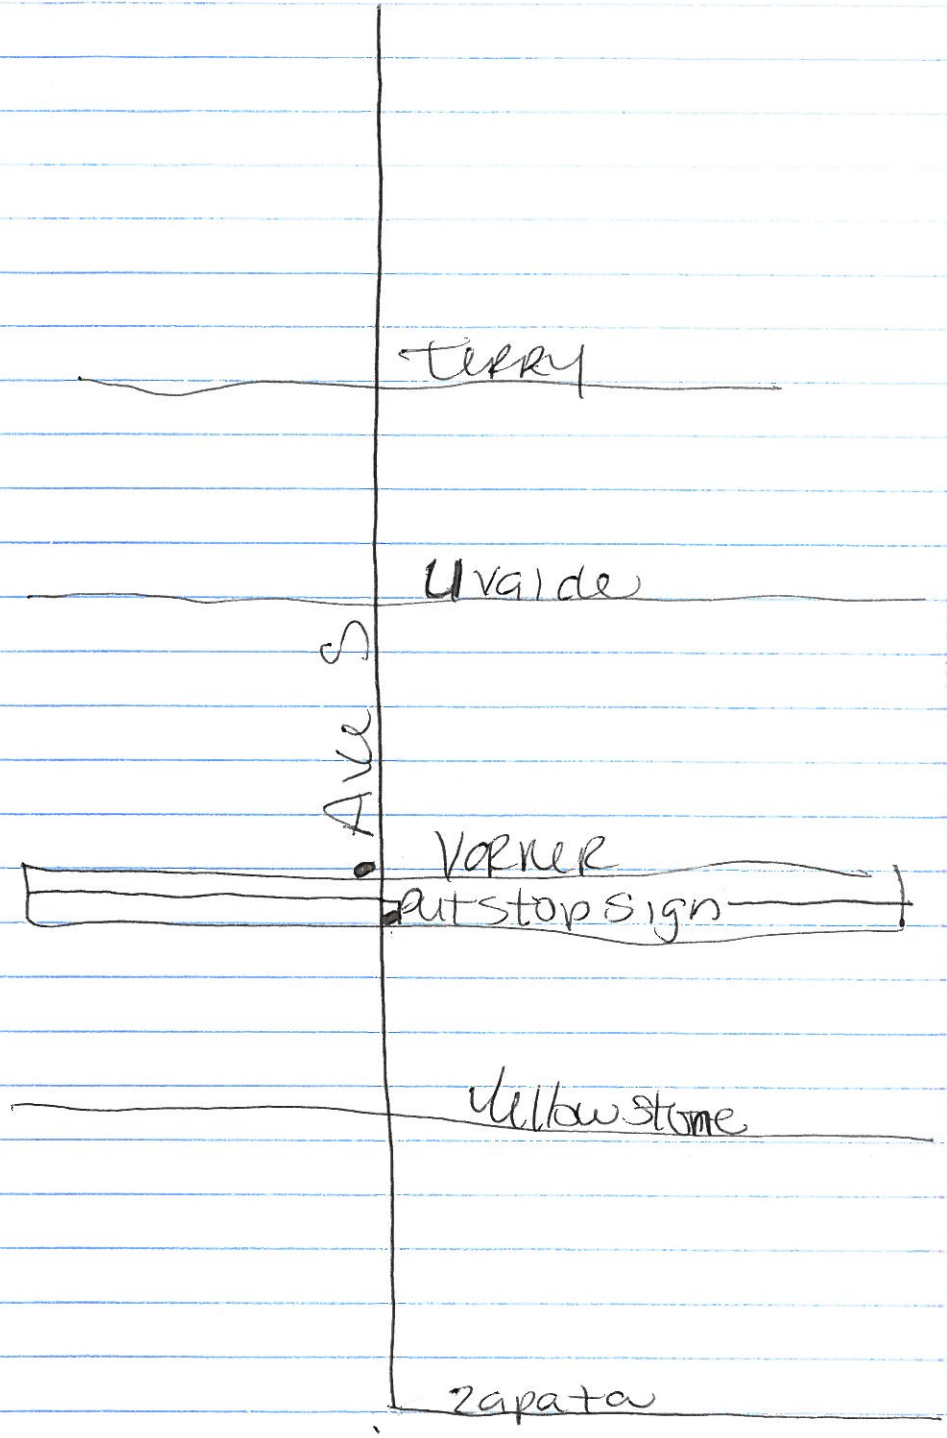 terry
Uvalde
Ave S
Vorner
Put stop sign
Yellowstone
zapata